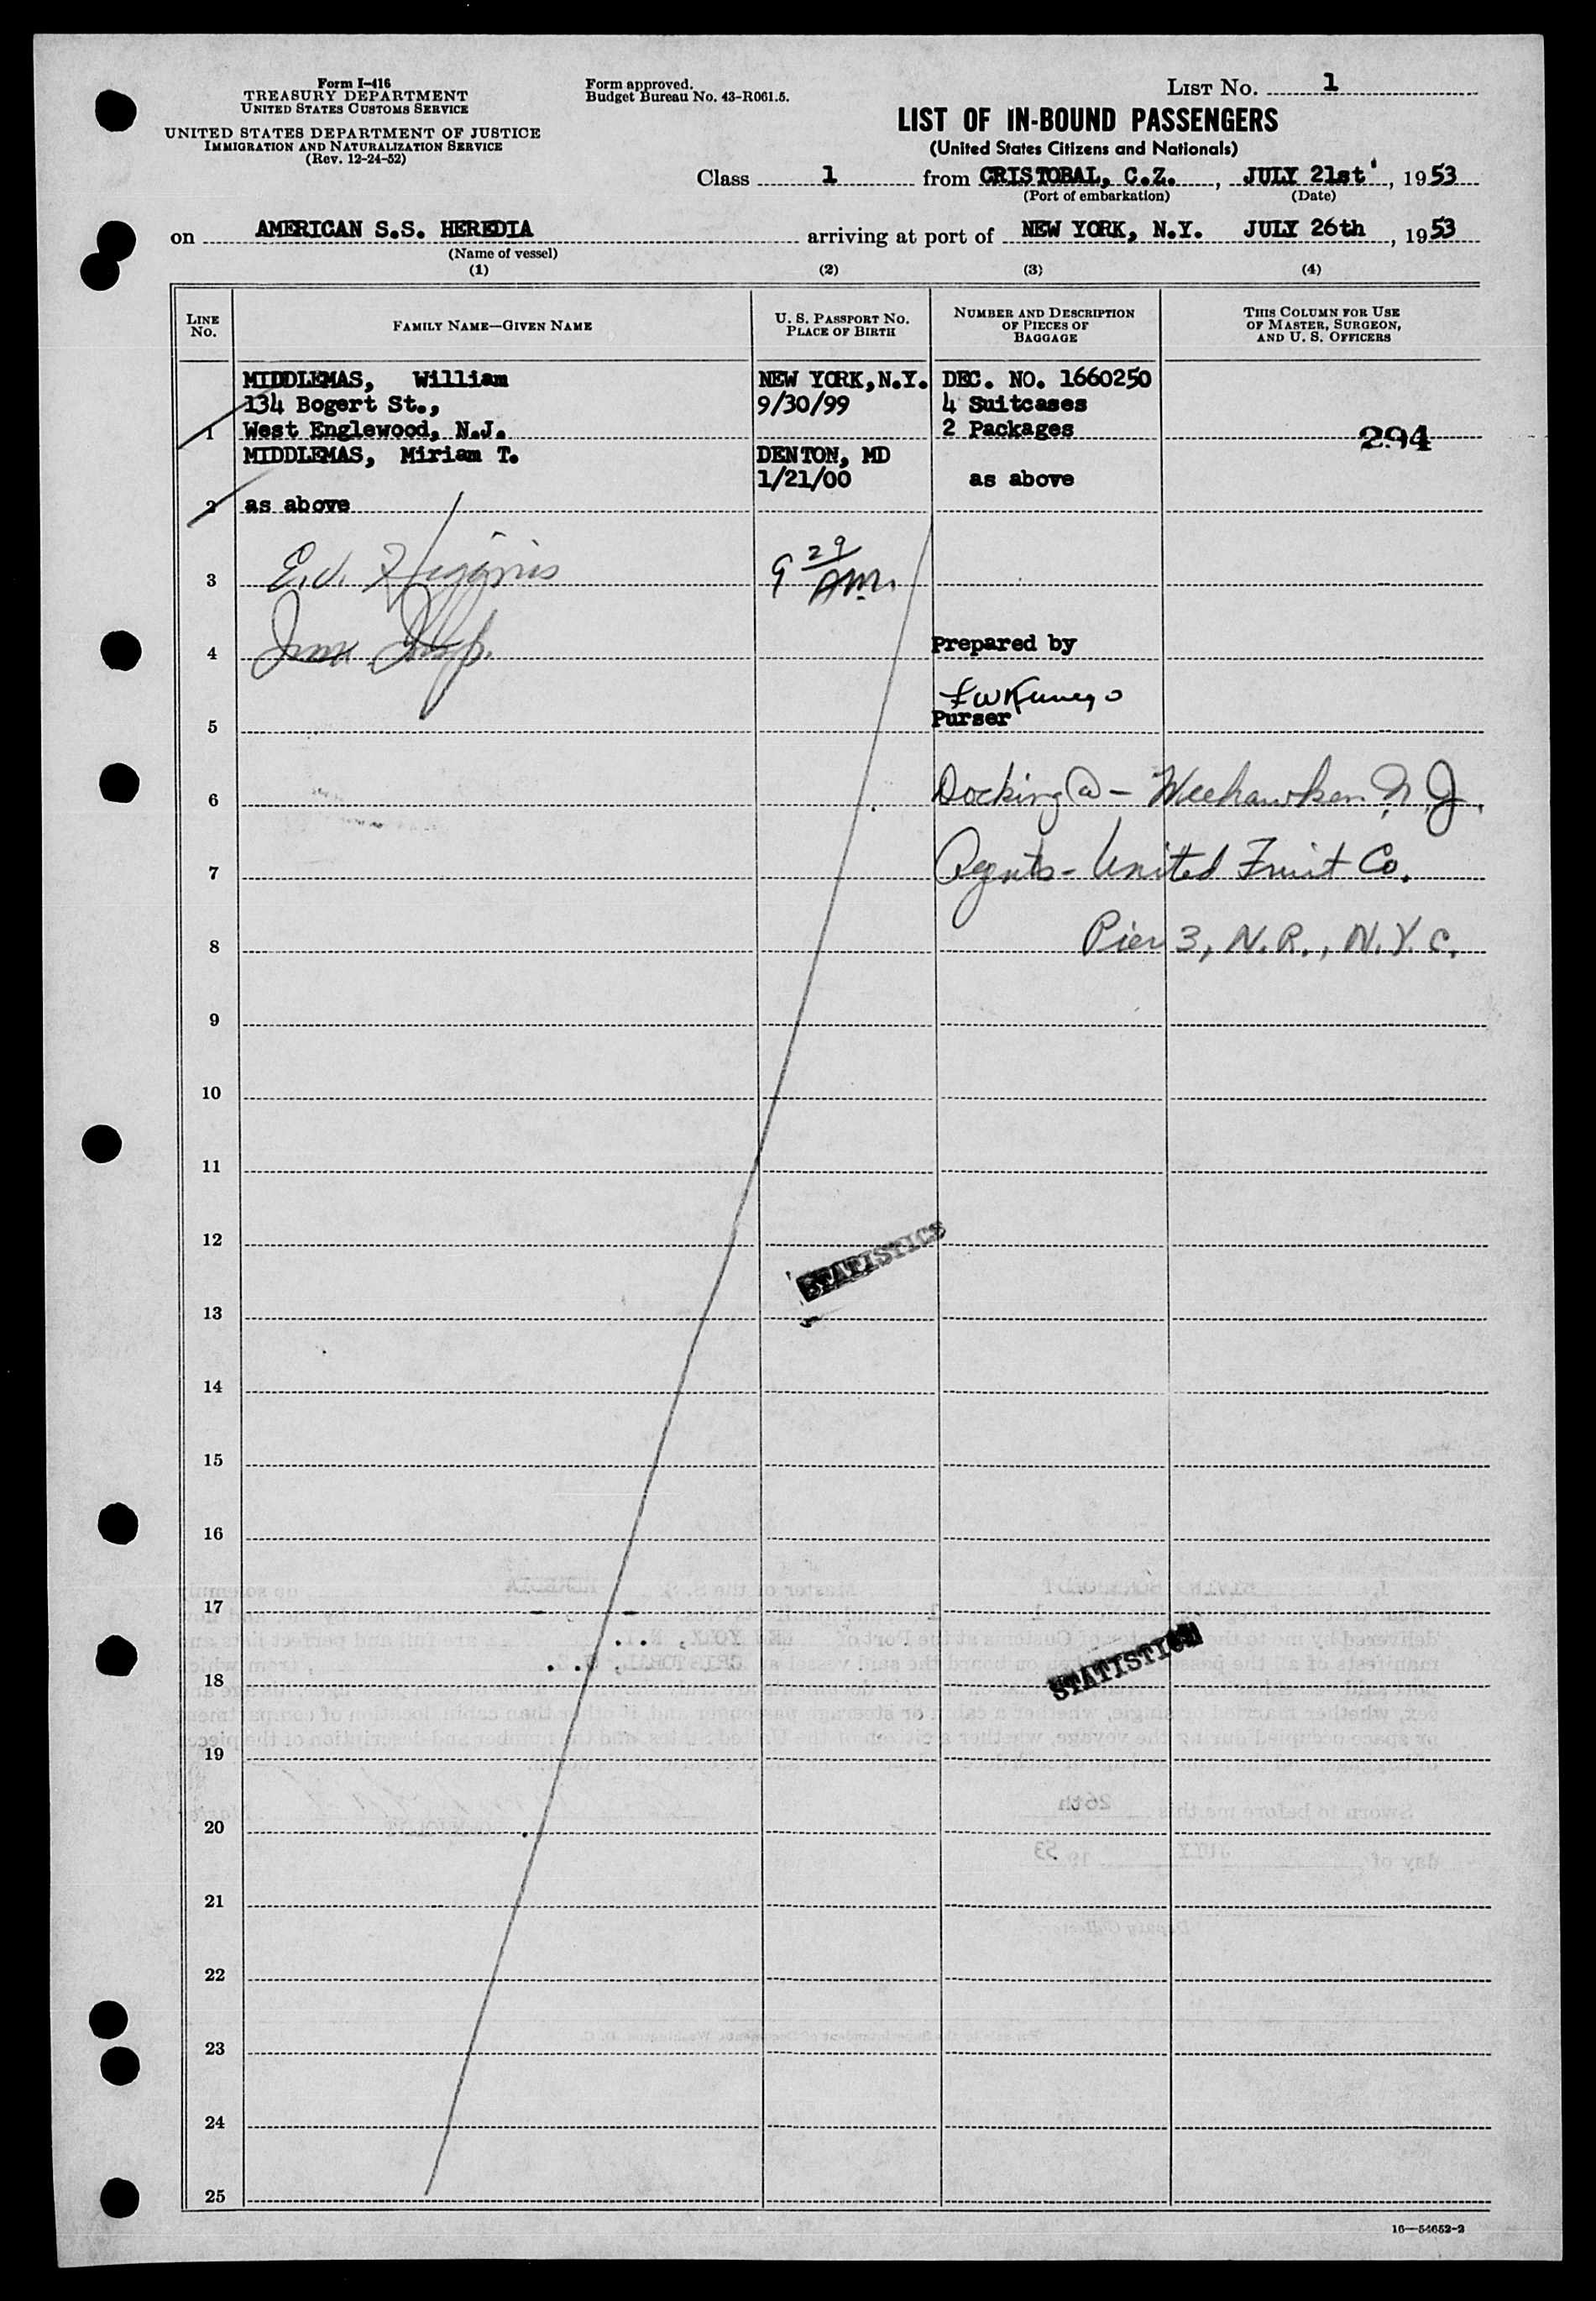 Form I-416
TREASURY DEPARTMENT
UNITED STATES CUSTOMS SERVICE
UNITED STATES DEPARTMENT OF JUSTICE
IMMIGRATION AND NATURALIZATION SERVICE
(Rev. 12-24-52)
Form approved.
Budget Bureau No. 43-R061.5.
LIST No. 1
LIST OF IN-BOUND PASSENGERS
(United States Citizens and Nationals)
Class 1 from CRISTOBAL, C.Z., JULY 21st, 1953
(Port of embarkation) (Date)
on AMERICAN S.S. HEREDIA arriving at port of NEW YORK, N.Y. JULY 26th, 1953
(Name of vessel)
(1) (2) (3) (4)
LINE No. FAMILY NAME—GIVEN NAME U. S. PASSPORT No. PLACE OF BIRTH NUMBER AND DESCRIPTION OF PIECES OF BAGGAGE THIS COLUMN FOR USE OF MASTER, SURGEON, AND U. S. OFFICERS
MIDDLEMAS, William NEW YORK,N.Y. DEC. NO. 1660250
134 Bogert St., 9/30/99 4 Suitcases
1 West Englewood, N.J. 2 Packages 294
MIDDLEMAS, Miriam T. DENTON, MD
1/21/00 as above
2 as above
3 E.J. Higgins 9 29 AM.
4 Prepared by
5 Purser
6 Docking @ - Weehawken N.J.
7 Agents - United Fruit Co.
8 Pier 3, N.R., N.Y.C.
9
10
11
12
STATISTICS
13
14
15
16
17
STATISTICS
18
19
20
21
22
23
24
25
16—54652-2